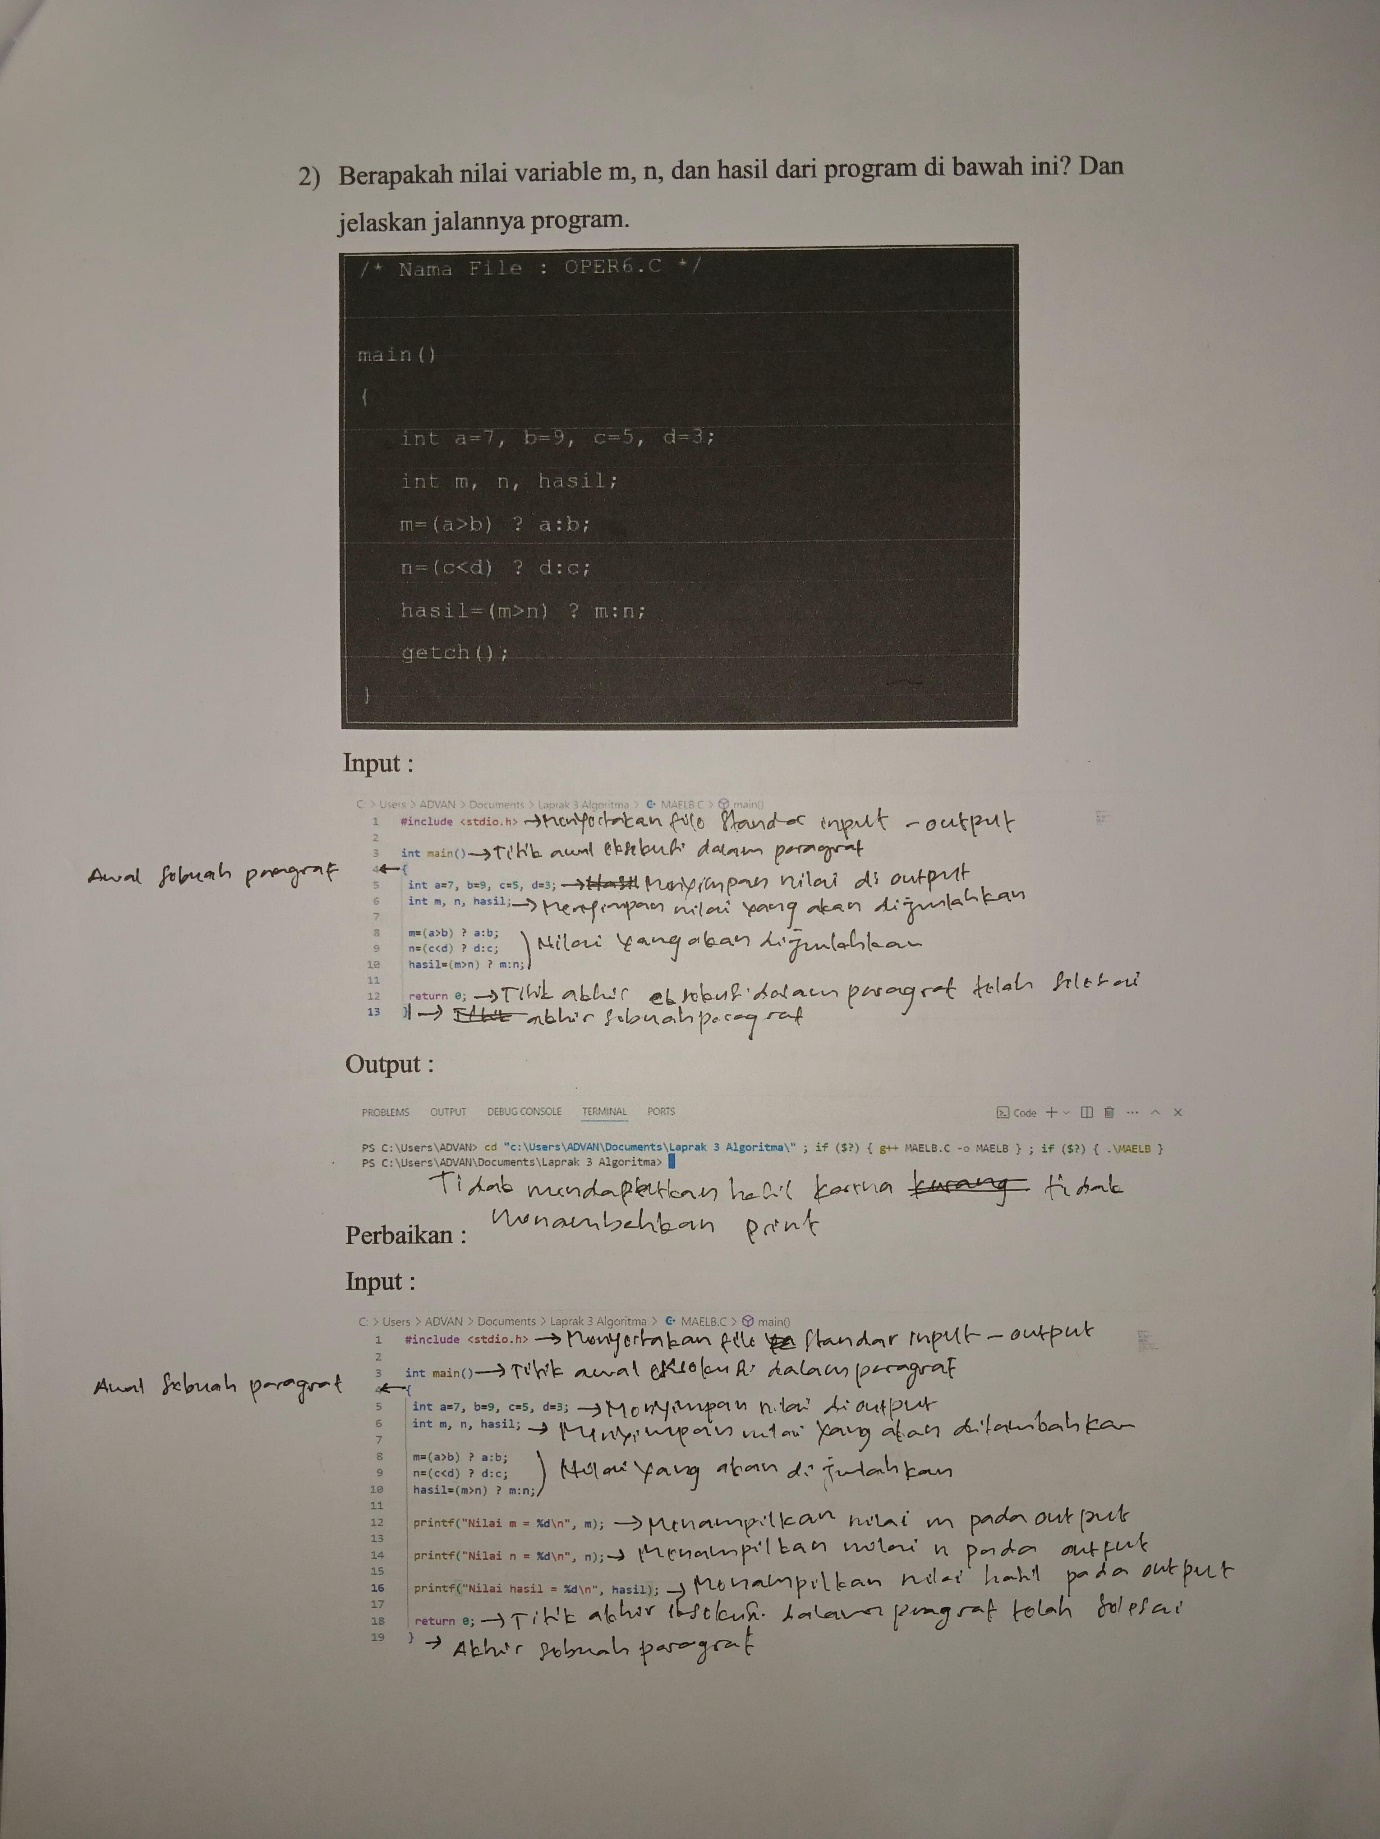 2) Berapakah nilai variable m, n, dan hasil dari program di bawah ini? Dan
jelaskan jalannya program.
/* Nama File : OPER6.C */
main()
{
int a=7, b=9, c=5, d=3;
int m, n, hasil;
m=(a>b) ? a:b;
n=(c<d) ? d:c;
hasil=(m>n) ? m:n;
getch();
}
Input :
C: > Users > ADVAN > Documents > Laprak 3 Algoritma > MAELB.C > main()
1 #include <stdio.h> → Menyertakan file Standar input - output
2
3 int main() → Titik awal eksekusi dalam paragraf
Awal sebuah paragraf ← 4 {
5 int a=7, b=9, c=5, d=3; → Menyimpan nilai di output
6 int m, n, hasil; → Menyimpan nilai yang akan dijumlahkan
7
8 m=(a>b) ? a:b;
9 n=(c<d) ? d:c; ) Nilai yang akan dijumlahkan
10 hasil=(m>n) ? m:n;
11
12 return 0; → Titik akhir eksekusi dalam paragraf telah selesai
13 } → akhir sebuah paragraf
Output :
PROBLEMS OUTPUT DEBUG CONSOLE TERMINAL PORTS Code
PS C:\Users\ADVAN> cd "c:\Users\ADVAN\Documents\Laprak 3 Algoritma\" ; if ($?) { g++ MAELB.C -o MAELB } ; if ($?) { .\MAELB }
PS C:\Users\ADVAN\Documents\Laprak 3 Algoritma>
Tidak mendapatkan hasil karena kurang tidak
menambahkan print
Perbaikan :
Input :
C: > Users > ADVAN > Documents > Laprak 3 Algoritma > MAELB.C > main()
1 #include <stdio.h> → Menyertakan file Standar input - output
2
3 int main() → Titik awal eksekusi dalam paragraf
Awal sebuah paragraf ← 4 {
5 int a=7, b=9, c=5, d=3; → Menyimpan nilai di output
6 int m, n, hasil; → Menyimpan nilai yang akan ditambahkan
7
8 m=(a>b) ? a:b;
9 n=(c<d) ? d:c; ) Nilai yang akan dijumlahkan
10 hasil=(m>n) ? m:n;
11
12 printf("Nilai m = %d\n", m); → Menampilkan nilai m pada output
13
14 printf("Nilai n = %d\n", n); → Menampilkan nilai n pada output
15
16 printf("Nilai hasil = %d\n", hasil); → Menampilkan nilai hasil pada output
17
18 return 0; → Titik akhir eksekusi dalam paragraf telah selesai
19 } → Akhir sebuah paragraf